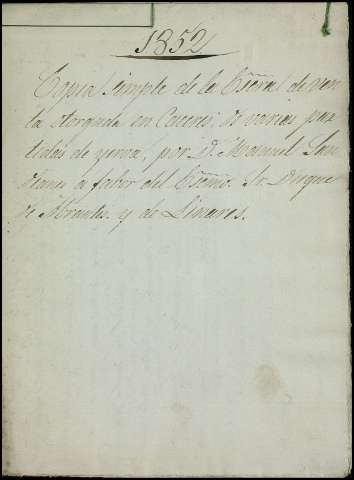 1852
Copia simple de la Escra de ven
ta otorgada en Caceres, de varias par
tidas de yerva, por D. Manuel San
a fabor del Escmo. Sr. Duque
de Abrantes y de Linares.